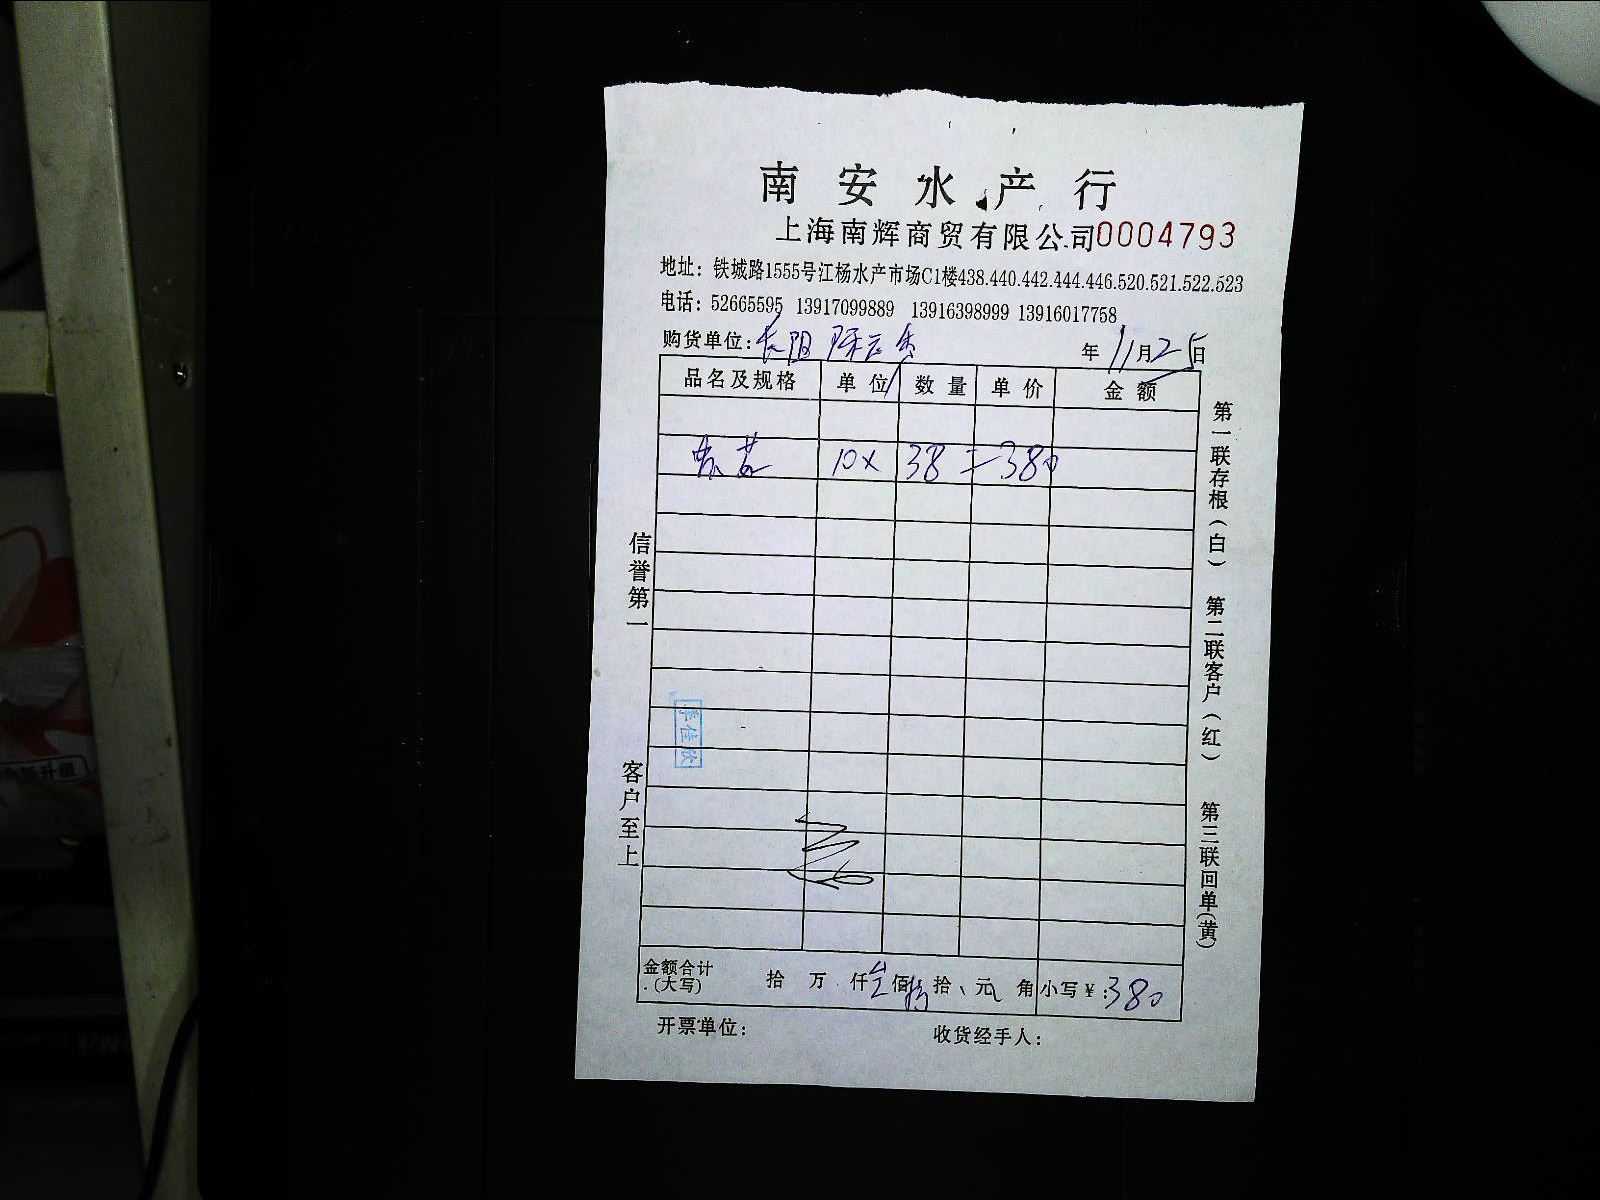 南安水产行
上海南辉商贸有限公司 0004793
地址：铁城路1555号江杨水产市场C1楼438.440.442.444.446.520.521.522.523
电话：52665595 13917099889 13916398999 13916017758
购货单位： 年 11 月 25 日
品名及规格 单位 数量 单价 金额
10× 38 = 380
第一联存根（白） 第二联客户（红） 第三联回单(黄)
信誉第一 客户至上
李佳欣
金额合计 拾 万 仟 佰 拾 元 角 小写￥：380
.(大写)
开票单位： 收货经手人：
升级